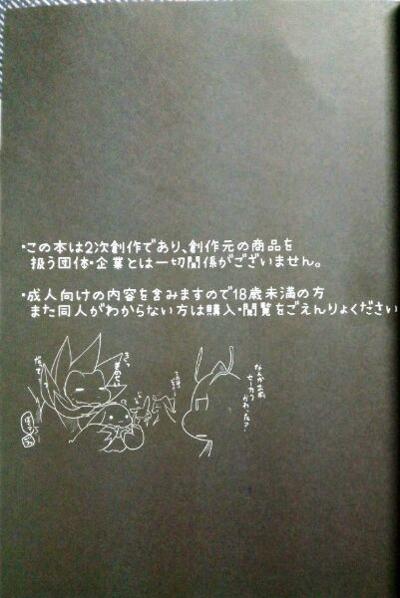 ・この本は2次創作であり、創作元の商品を
扱う団体・企業とは一切関係がございません。
・成人向けの内容を含みますので18歳未満の方
また同人がわからない方は購入・閲覧をごえんりょください
なんかおまえ